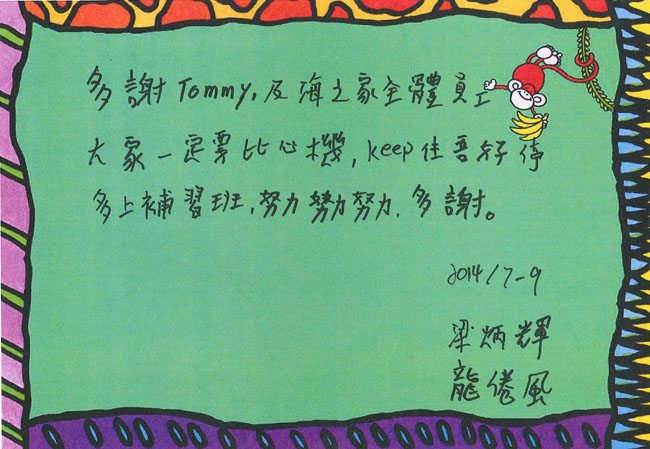 多謝Tommy,及海之家全體員工
大家一定要比心機,keep住吾好停
多上補習班,努力努力努力.多謝。
2014/7-9
梁炳輝
龍倦風